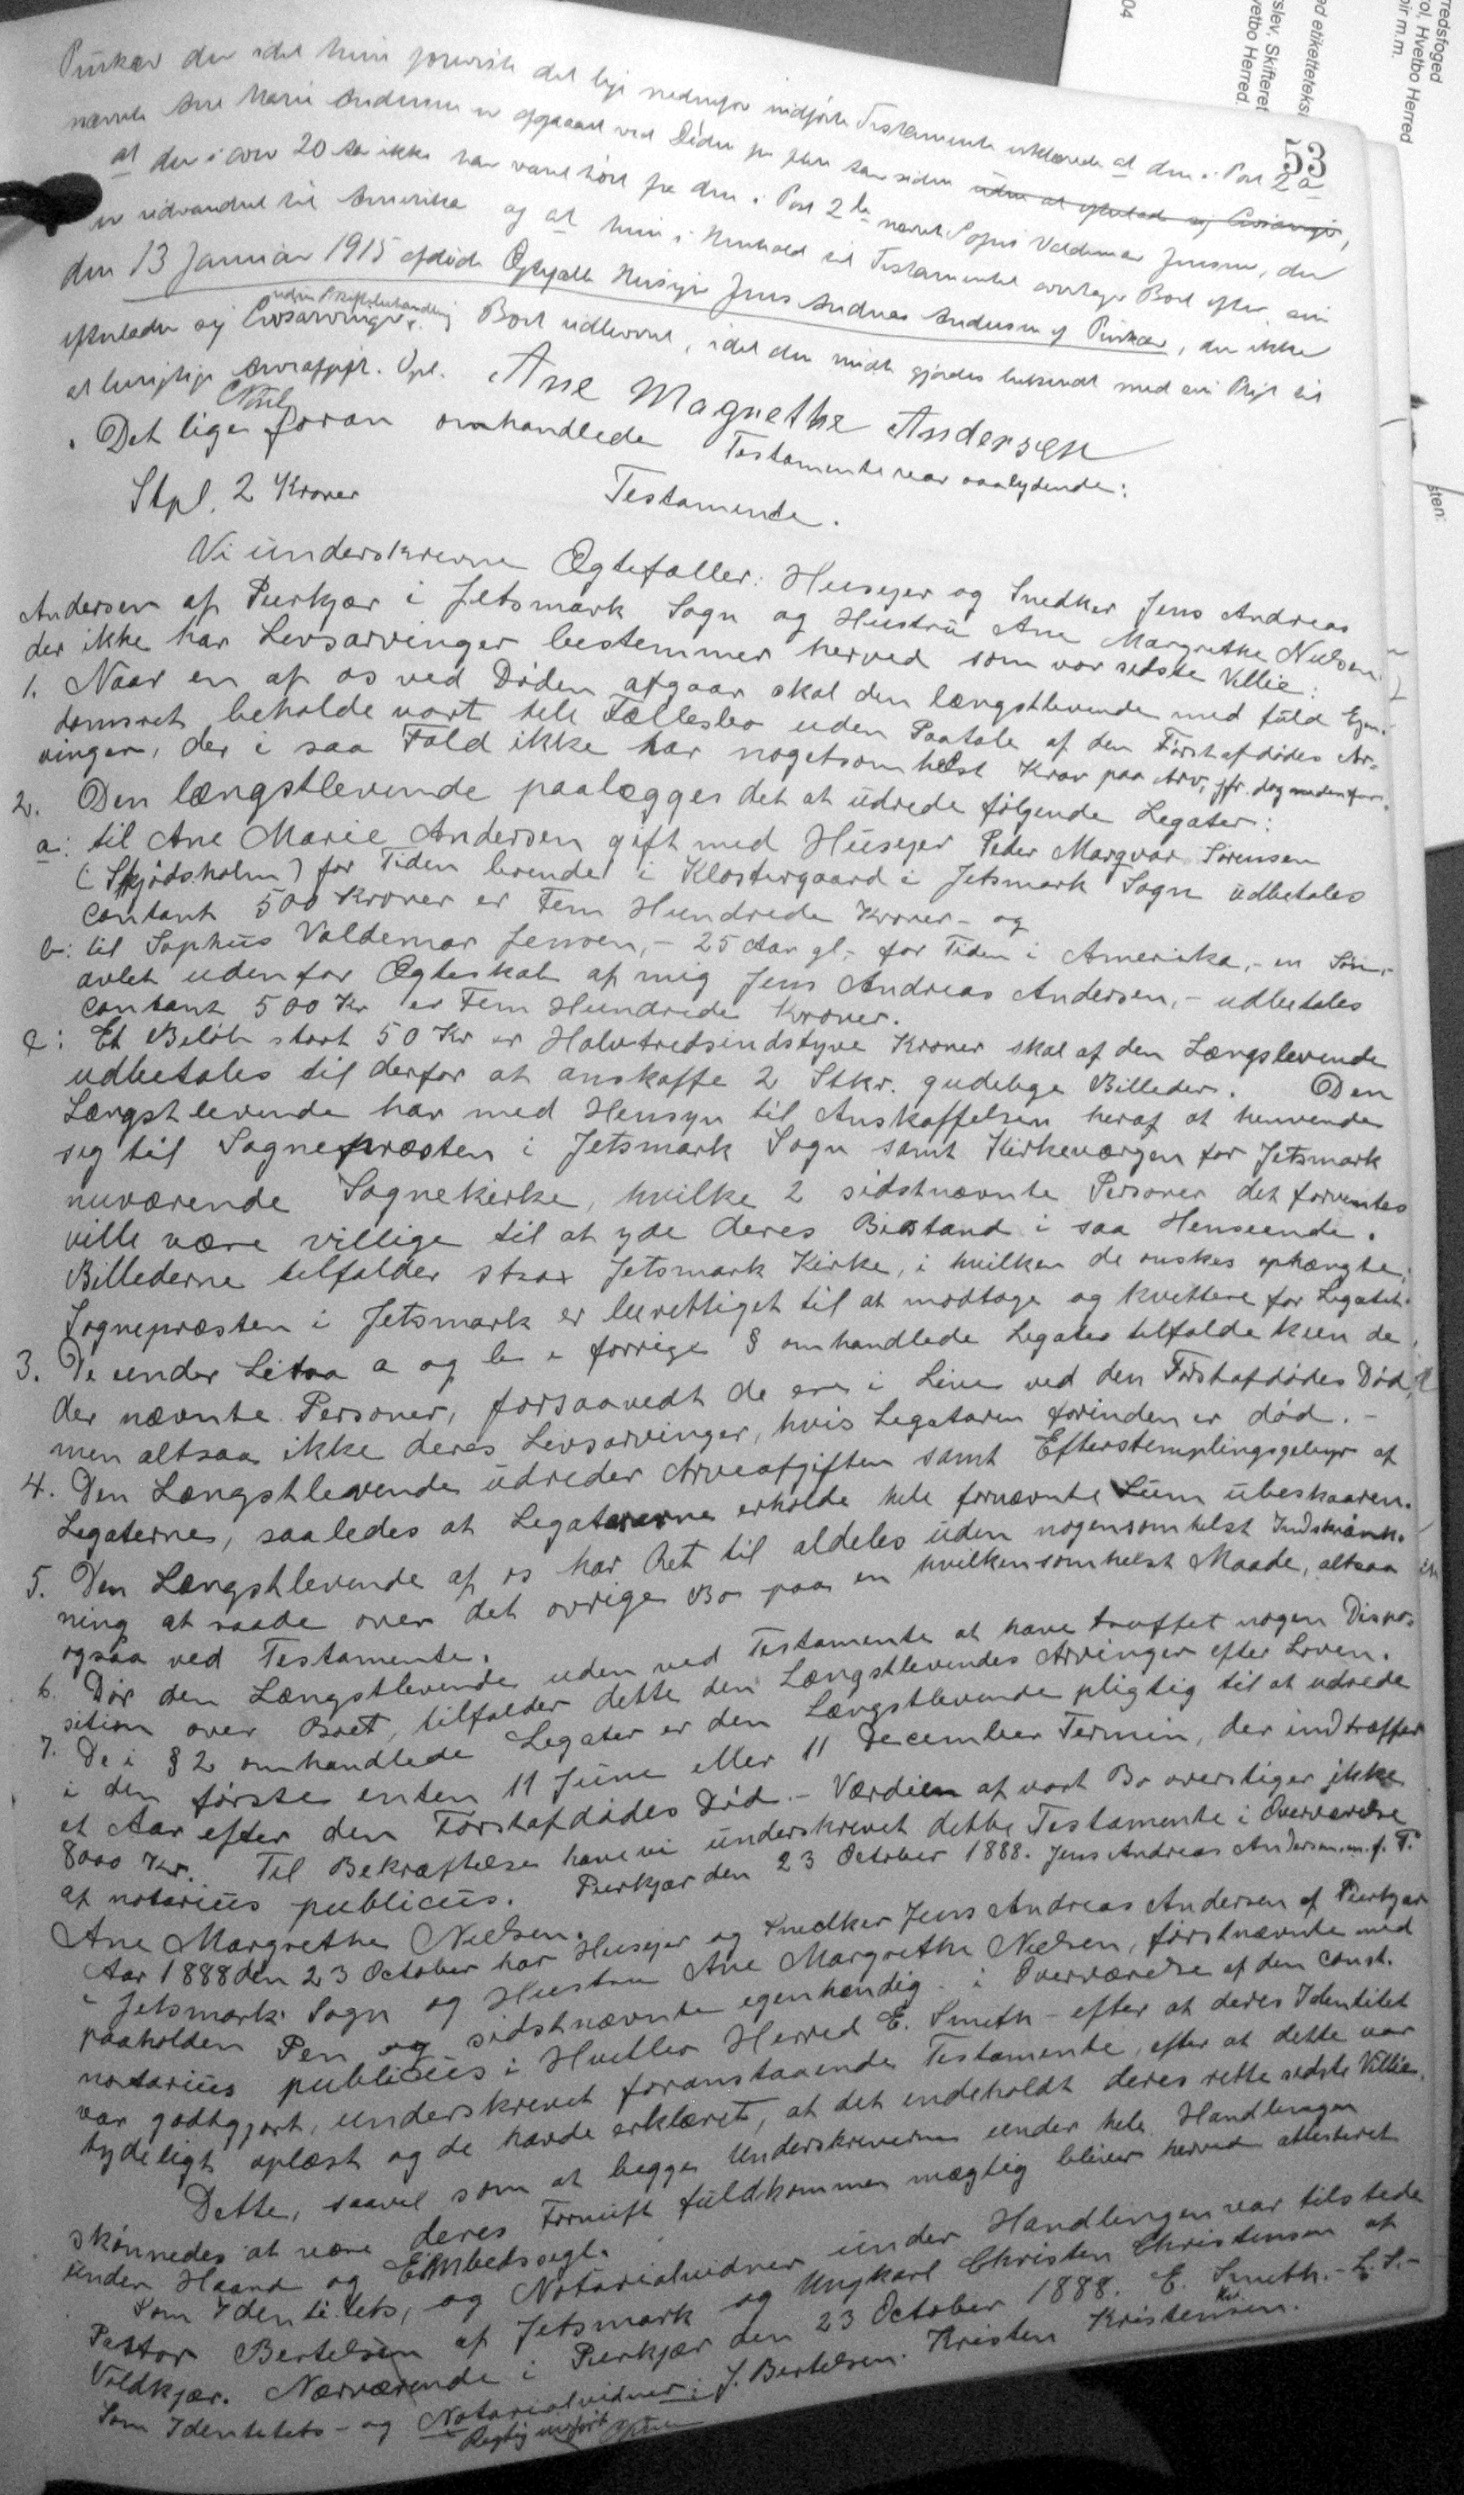 53
Purkær der idet hun foreviste det lige nedenfor indførte Testamente erklærede at den i Post 2 a
nævnte Ane Marie Andersen er afgaaet ved Døden for flere Aar siden uden at efterlade sig Livsarvinger,
at der i over 20 Aar ikke har været hørt fra den i Post 2 b nævnte Sofus Valdemar Jensen, der
er udvandret til Amerika og at hun i Henhold til Testamentet overtager Boet efter sin
den 13 Januar 1915 afdøde Ægtefælle Husejer Jens Andreas Andersen af Purkær, der ikke
efterlader sig Livsarvinger. uden Skiftebehandling Boet udleveret, idet den mødte gjordes bekendt med sin Pligt til
at berigtige Arveafgift. Opl. Ane Magrethe Andersen
Det lige foran omhandlede Testamente var saalydende:
Stpl. 2 Kroner Testamente.
Vi underskrevne Ægtefæller: Husejer og Snedker Jens Andreas
Andersen af Purkjær i Jetsmark Sogn og Hustru Ane Margrethe Nielsen
der ikke har Livsarvinger bestemmer herved som vor sidste Villie:
1. Naar en af os ved Døden afgaar skal den længstlevende med fuld Ejen-
domsret beholde vort hele Fællesbo uden Paatale af den Førstafdødes Ar-
vinger, der i saa Fald ikke har nogetsomhelst Krav paa Arv, jfr. dog nedenfor.
2. Den længstlevende paalægges det at udrede følgende Legater:
a: til Ane Marie Andersen gift med Husejer Peder Marqvar Sørensen
(Skjødsholm) for Tiden boende i Klostergaard i Jetsmark Sogn udbetales
contant 500 Kroner er Fem Hundrede Kroner - og
b: til Sophus Valdemar Jensen, - 25 Aar gl, - for Tiden i Amerika, - en Søn,-
avlet udenfor Ægteskab af mig Jens Andreas Andersen, - udbetales
contant 500 Kr er Fem Hundrede Kroner.
c: Et Beløb stort 50 Kr er Halvtredsindstyve Kroner skal af den Længslevende
udbetales til derfor at anskaffe 2 Stkr. gudelige Billeder. Den
Længstlevende har med Hensyn til Anskaffelsen heraf at henvende
sig til Sognepræsten i Jetsmark Sogn samt Kirkeværgen for Jetsmark
nuværende Sognekirke, hvilke 2 sidstnævnte Personer det forventes
ville være villige til at yde deres Bistand i saa Henseende.
Billederne tilfalder strax Jetsmark Kirke, i hvilken de ønskes ophængte;
Sognepræsten i Jetsmark er berettiget til at modtage og kvittere for Legatet.
3. De under Litra a og b i forrige § omhandlede Legater tilfalde kun de
der nævnte Personer, forsaavedt de ere i Live ved den Førstafdødes Død,
men altsaa ikke deres Livsarvinger, hvis Legataren forinden er død. -
4. Den Længstlevende udreder Arveafgiften samt Efterstemplingsgebyr af
Legaterne, saaledes at Legatarerne erholde hele fornævnte Sum ubeskaaren.
5. Den Længstlevende af os har Ret til aldeles uden nogensomhelst Indskrænk-
ning at raade over det øvrige Bo paa en hvilkensomhelst Maade, altsaa
ogsaa ved Testamente.
6. Dør den Længstlevende uden ved Testamente at have truffet nogen Dispo-
sition over Boet, tilfalder dette den Længstlevendes Arvinger efter Loven.
7. De i § 2 omhandlede Legater er den Længstlevende pligtig til at udrede
i den første enten 11 Juni eller 11 December Termin, der indtræffer
et Aar efter den Førstafdødes Død. - Værdien af vort Bo overstiger ikke
8000 Kr. Til Bekræftelse have vi underskrevet dette Testamente i Overværelse
af notarius publicus. Purkjær den 23 October 1888. Jens Andreas Andersen. m. f. P.
Ane Margrethe Nielsen.
Aar 1888 den 23 October har Husejer og Snedker Jens Andreas Andersen af Purkjær
i Jetsmark Sogn og Hustru Ane Margrethe Nielsen, førstnævnte med
paaholden Pen og sidstnævnte egenhændig i Overværelse af den const.
notarius publicus i Hvetbo Herred E. Smith - efter at deres Identitet
var godtgjort, underskrevet foranstaaende Testamente, efter at dette var
tydeligt oplæst og de havde erklæret, at det indeholdt deres rette sidste Villie.
Dette, saavel som at begge Underskriverne under hele Handlingen
skønnedes at være deres Fornuft fuldkommen mægtig bliver herved attesteret
under Haand og Embedssegl.
Som Identitets, og Notarialvidner under Handlingen var tilstede
Pastor Bertelsen af Jetsmark og Ungkarl Christen Christensen af
Voldkjær. Nærværende i Purkjær den 23 October 1888. E. Smith. - L. S. -
Som Identitets - og Notarialvidner: J. Bertelsen. Kristen Kristensen.
Rigtig udført
04
redsfoged
Hvetbo Herred
m.m.
etiketteteks
slev. Skifteret
vetbo Herred.
sten: